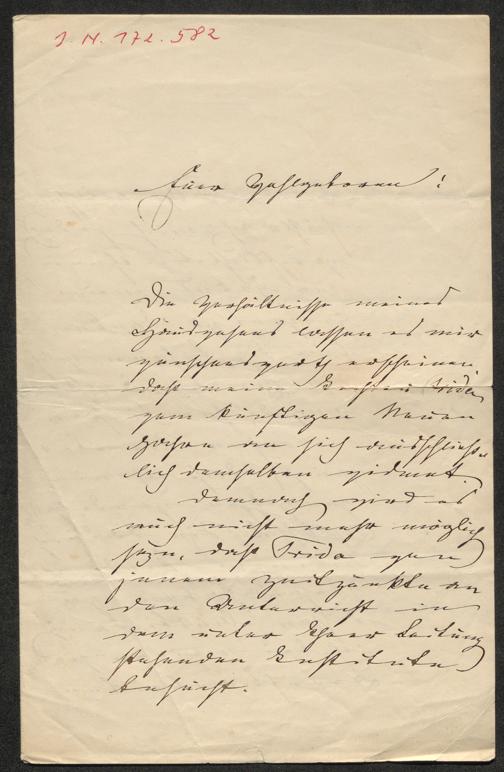 I. N. 172.582
Euer Wohlgeboren!
Die Verhältnisse meines
Hauswesens lassen es mir
wünschenswerth erscheinen,
daß meine Tochter Frida
vom künftigen Neuen
Jahre an sich ausschließ-
lich demselben widmet.
Demnach wird es
auch nicht mehr möglich
seyn, daß Frida von
jenem Zeitpunkte an
den Unterricht in
dem unter Ihrer Leitung
stehenden Institute
besucht.